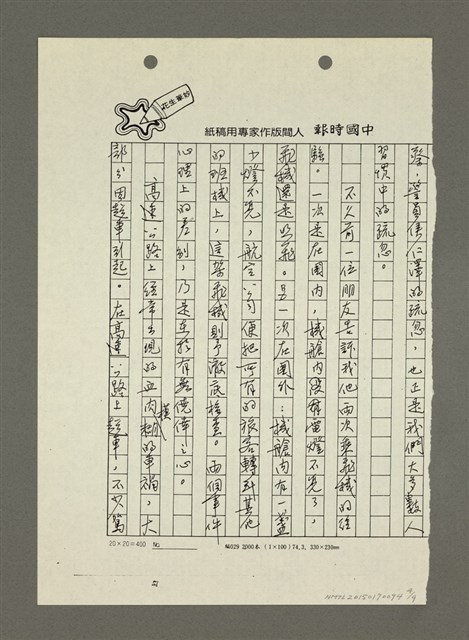 妙筆生花
中國時報 人間版作家專用稿紙
發，警員侯仁澤的疏忽，也正是我們大多數人
習慣中的疏忽。
不久前一位朋友告訴我他兩次乘飛機的經
驗。一次是在國內，機艙內後有電燈不亮了，
飛機還是照飛。另一次在國外：機艙內有一盞
小燈不亮，航空公司便把所有的旅客轉到其他
的班機上，這架飛機則予徹底檢查。兩個事件
心理上的差別，乃是在於有無僥倖之心。
高速公路上經常出現的血肉模糊的車禍，大
部分因超車引起。在高速公路上超車，不少駕
20×20=400 NO.
№029 2000本 (1×100) 74.3. 330×230mm
NMTL20150170094 4/9